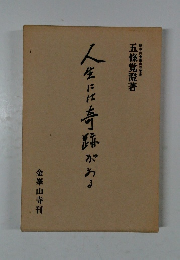 五條覚澄著
人生には奇蹟がある
金峯山寺刊